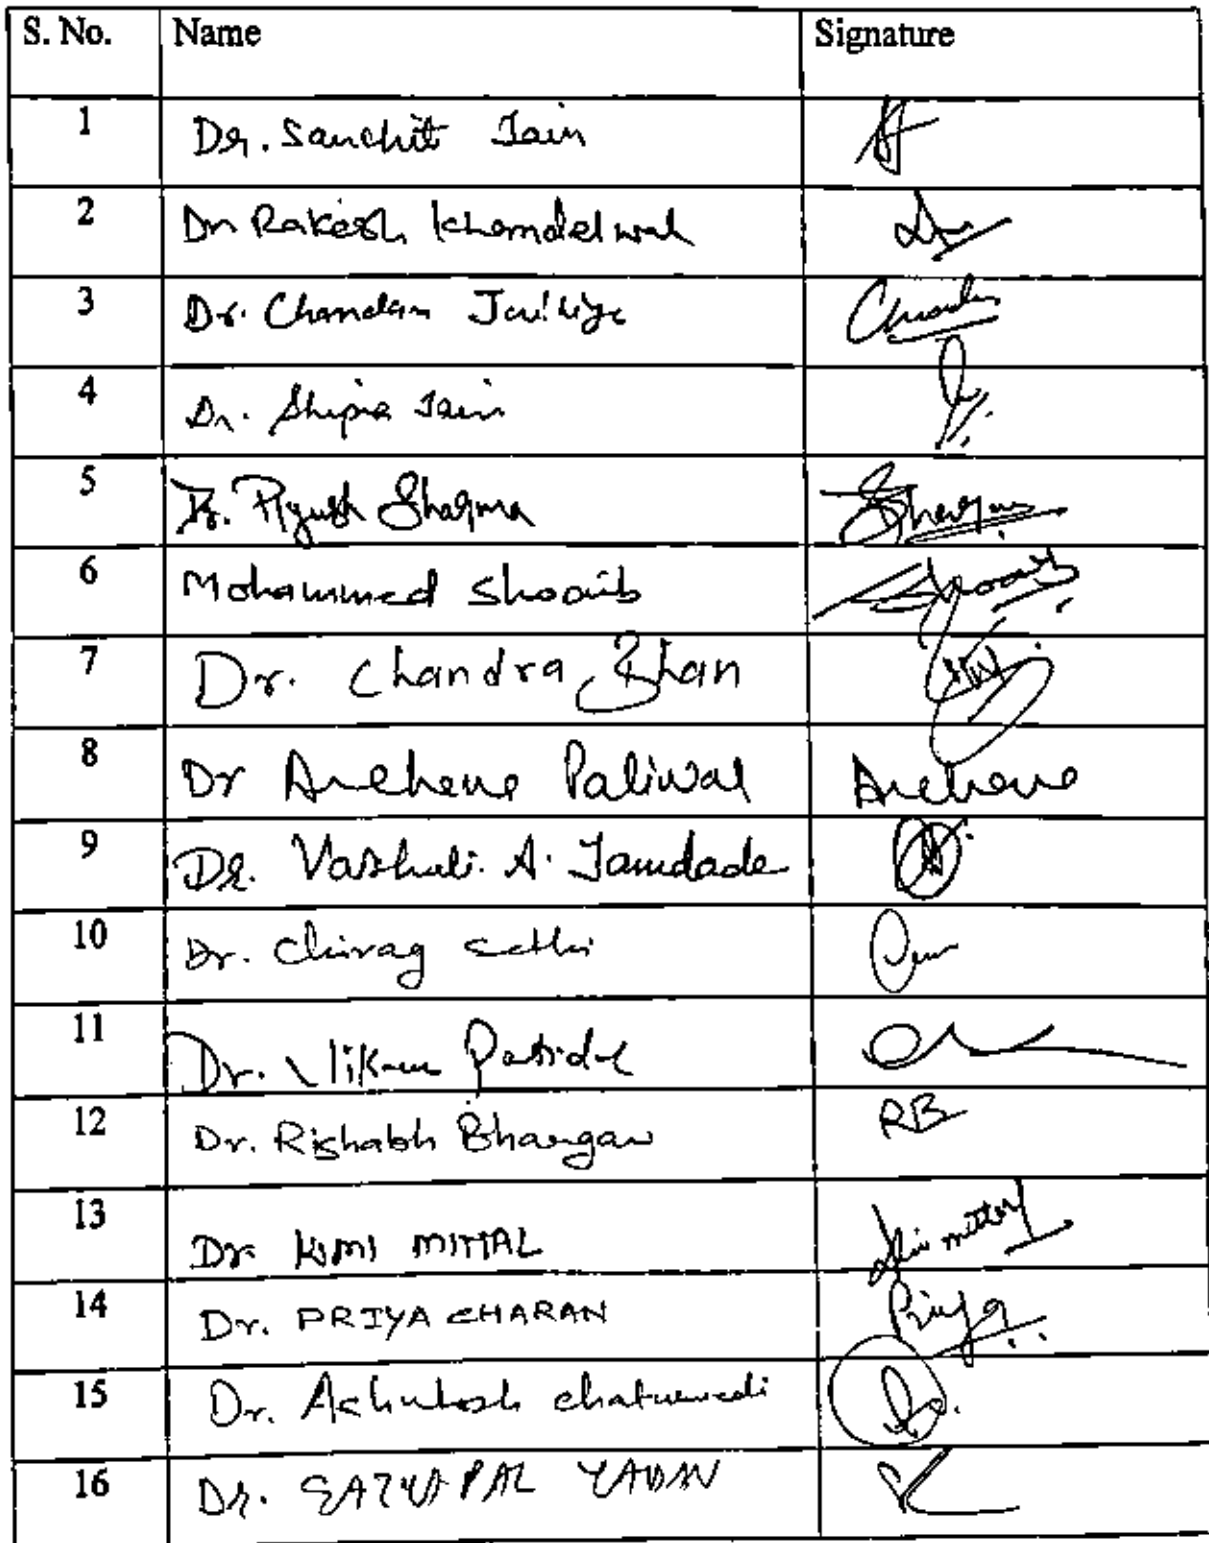 S. No. Name Signature
1 Dr. Sanchit Jain
2 Dr Rakesh Khandelwal
3 Dr. Chandan
4 Dr. Shipra Jain
5 Dr. Piyush Sharma Sharma
6 Mohammed Shoaib Shoaib
7 Dr. Chandra Bhan
8 Dr Archana Paliwal Archana
9 Dr. Vaishali. A. Jamdade
10 Dr. Chirag Sethi
11 Dr. Vikram Patidar
12 Dr. Rishabh Bhargav RB
13 Dr KIMI MITTAL Kimi mittal
14 Dr. PRIYA CHARAN Priya
15 Dr. Ashutosh chaturvedi
16 Dr. SATYAPAL YADAV